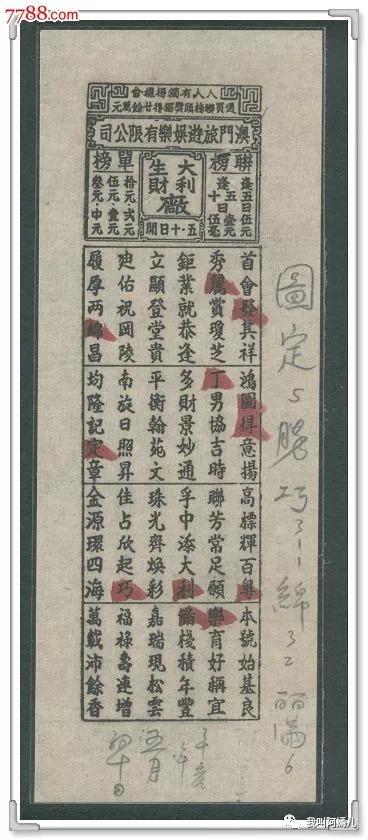 7788.com
人人有獨得機會
通買聯榜頭獎獨得廿餘萬元
澳門旅遊娛樂有限公司
聯榜
逢五日伍元
大利
生財
廠
五·十日開
單榜
拾元·弍元
伍元·壹元
叁元·中元
首會發其祥
秀麗賞瓊芝
鉅業就恭逢
立顯登堂貴
迪佑祝岡陵
履厚两綿昌
鴻圖得意揚
丁男協吉時
多財景妙通
平衡翰苑文
南旋日照昇
均隆記定章
高標輝百粵
聯芳常足願
孚中添大利
珠光齊煥彩
佳占欣起巧
金源環四海
本號始基良
樂育好稱宜
滿棧積年豐
嘉瑞現松雲
福祿壽連增
萬載沛餘香
圖定5
巧31綿32
五月
我叫阿嬌儿